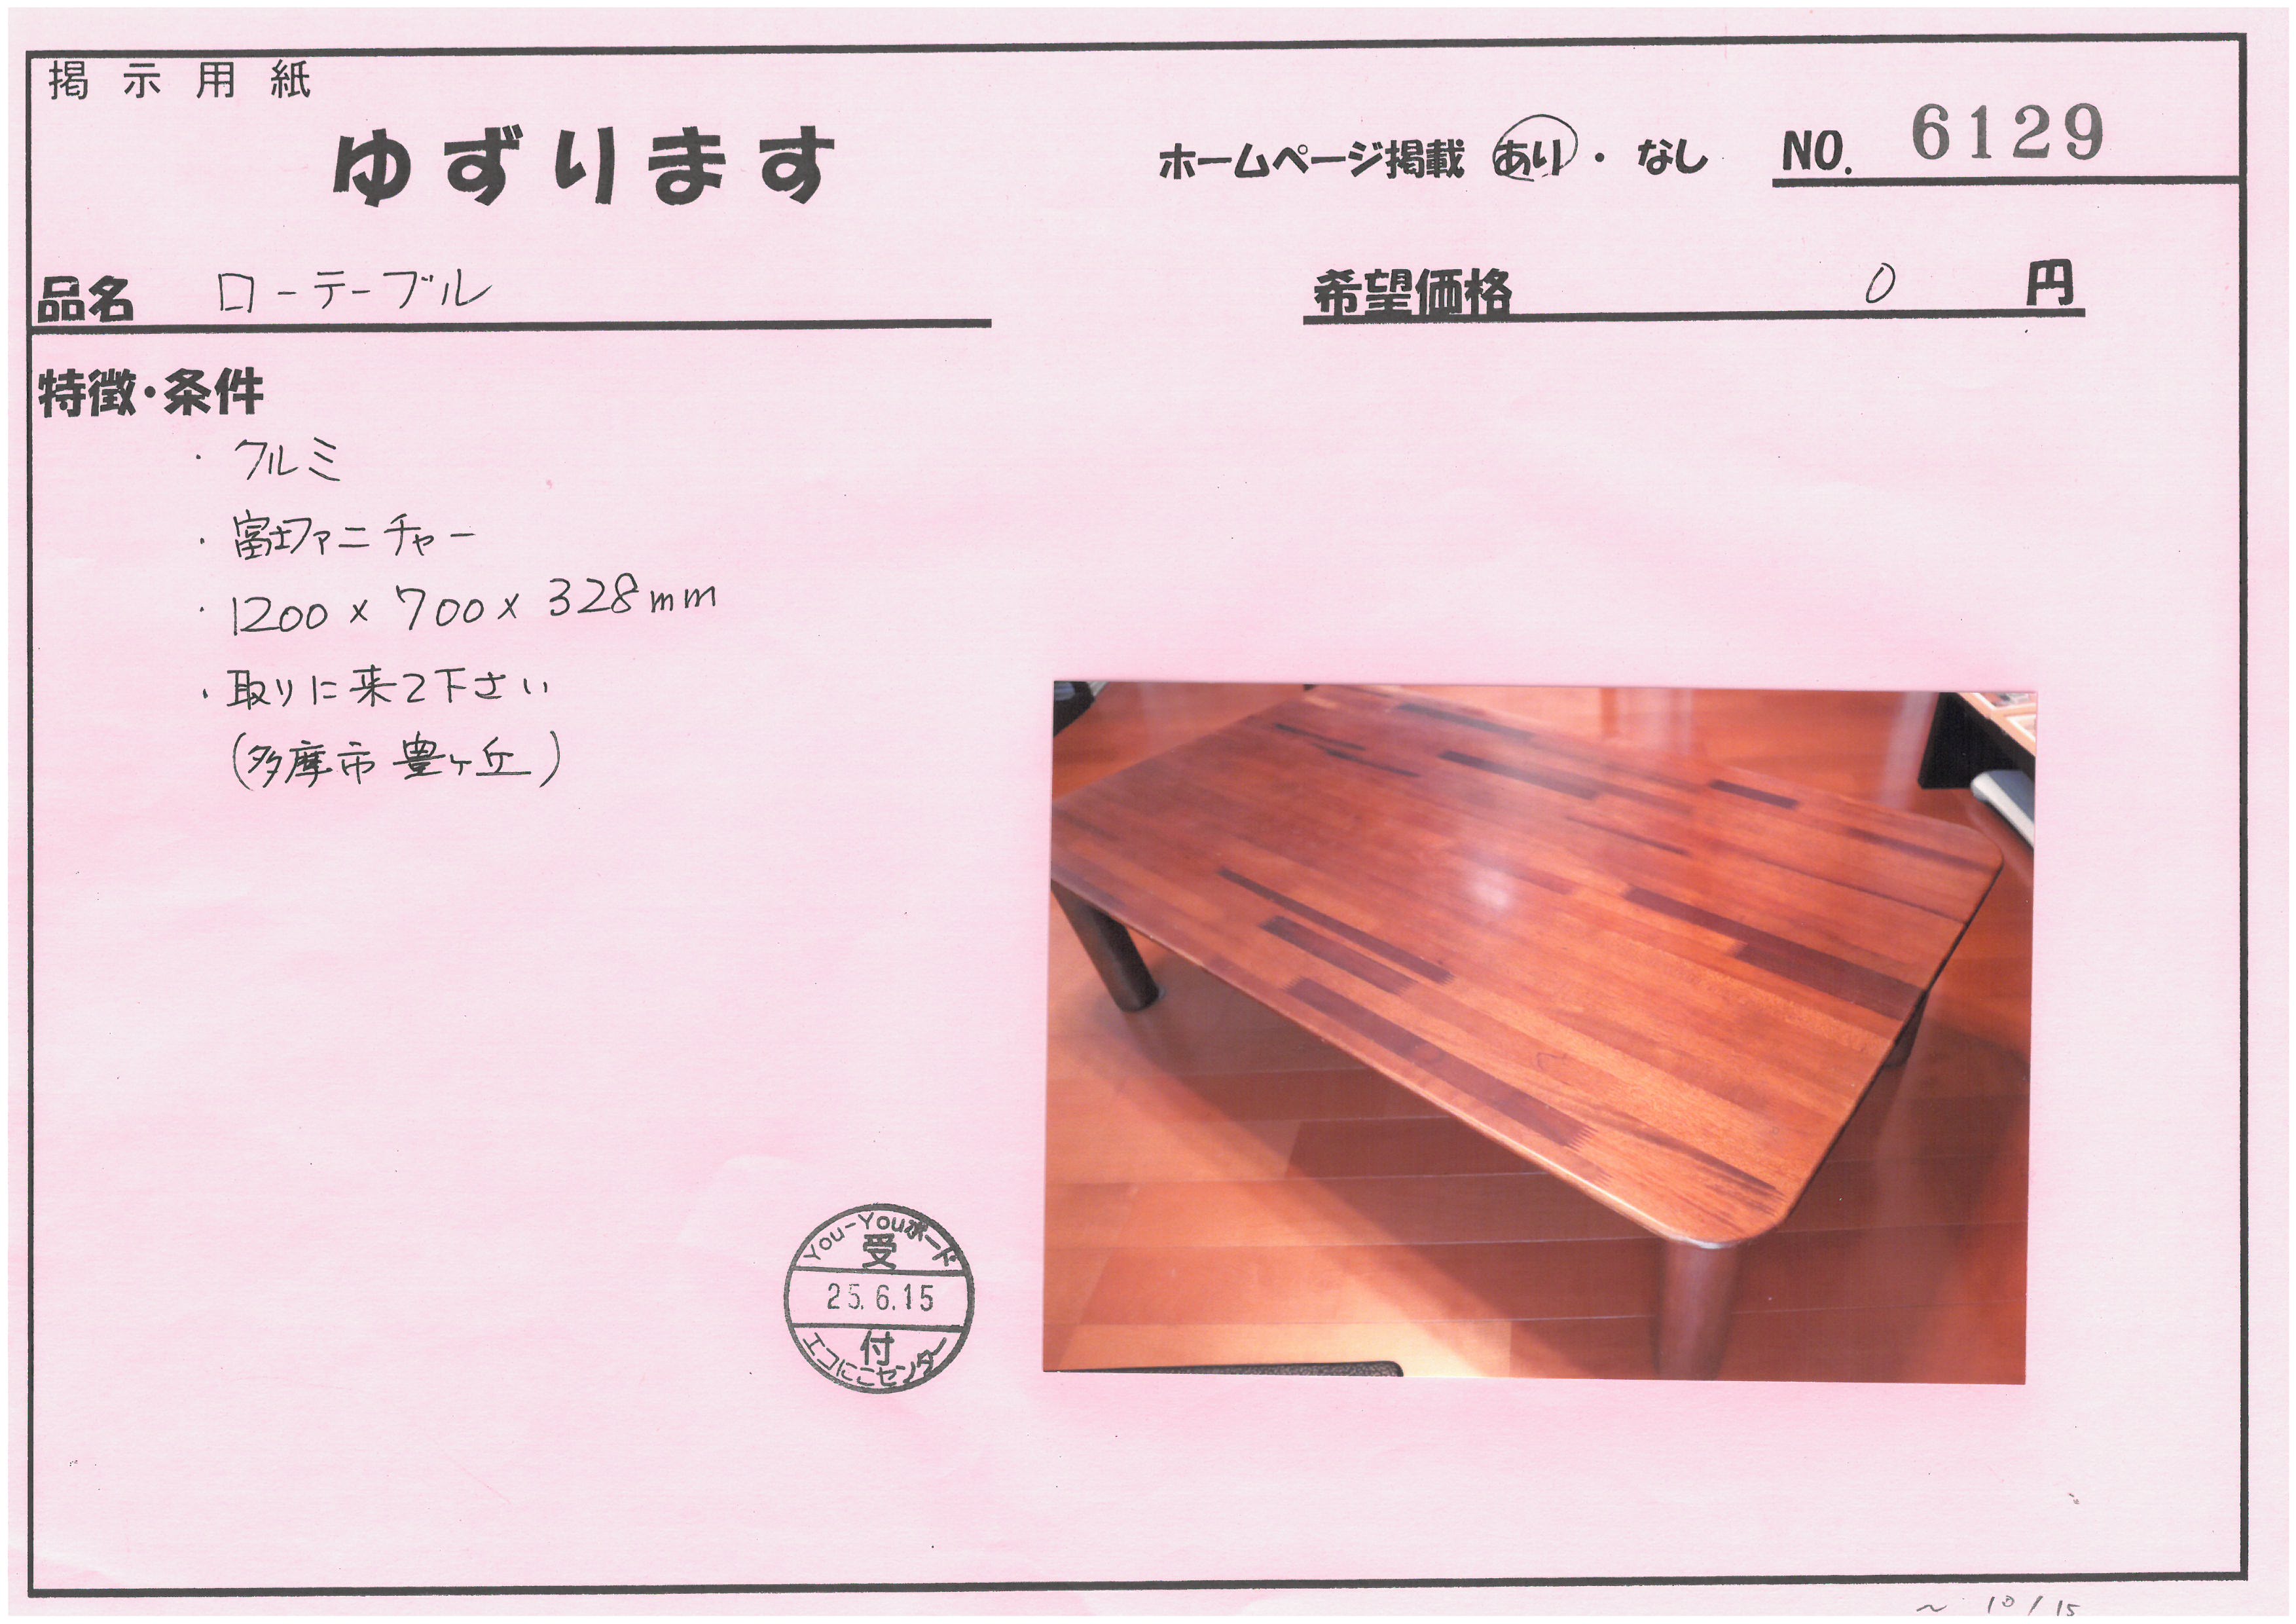 掲示用紙
ゆずります
ホームページ掲載 あり・なし NO. 6129
品名 ローテーブル
希望価格 0 円
特徴・条件
・クルミ
・富士ファニチャー
・1200 × 700 × 328mm
・取りに来て下さい
(多摩市 豊ヶ丘)
You-Youボード
受
25.6.15
付
エコにこセンター
~ 10/15